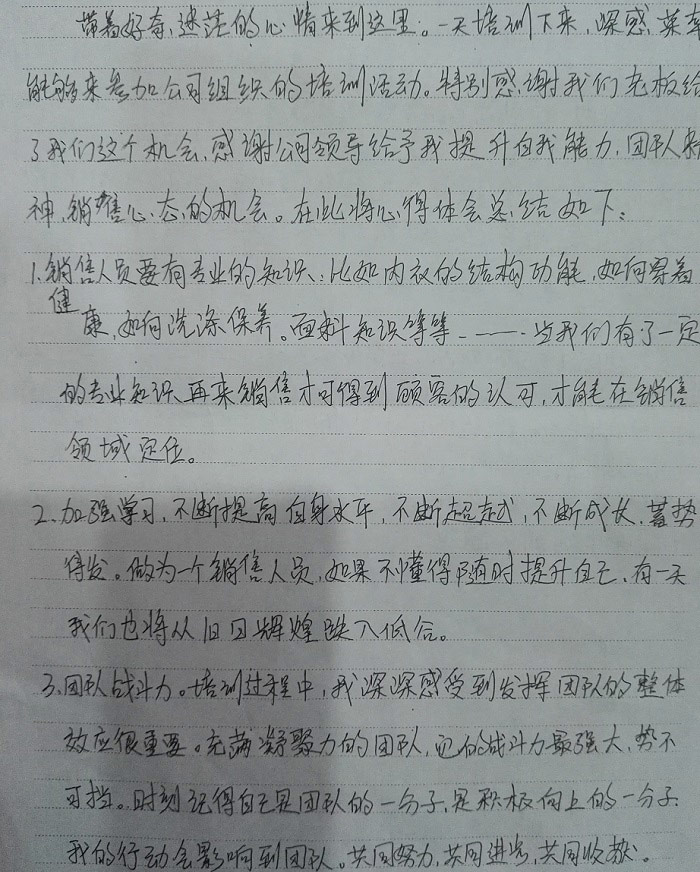 带着好奇、迷茫的心情来到这里。一天培训下来,深感荣幸
能够来参加公司组织的培训活动。特别感谢我们老板给
了我们这个机会、感谢公司领导给予我提升自我能力、团队精
神、销售心态的机会。在此将心得体会总结如下:
1、销售人员要有专业的知识:比如内衣的结构功能、如何穿着
健康、如何洗涤保养。面料知识等等——当我们有了一定
的专业知识、再来销售才可得到顾客的认可,才能在销售
领域定位。
2、加强学习,不断提高自身水平,不断超越,不断成长、蓄势
待发。做为一个销售人员,如果不懂得随时提升自己、有一天
我们也将从旧日辉煌跌入低谷。
3、团队战斗力。培训过程中,我深深感受到发挥团队的整体
效应很重要。充满凝聚力的团队,它的战斗力最强大、势不
可挡。时刻记得自己是团队的一分子,是积极向上的一分子、
我的行动会影响到团队。共同努力,共同进步,共同收获。